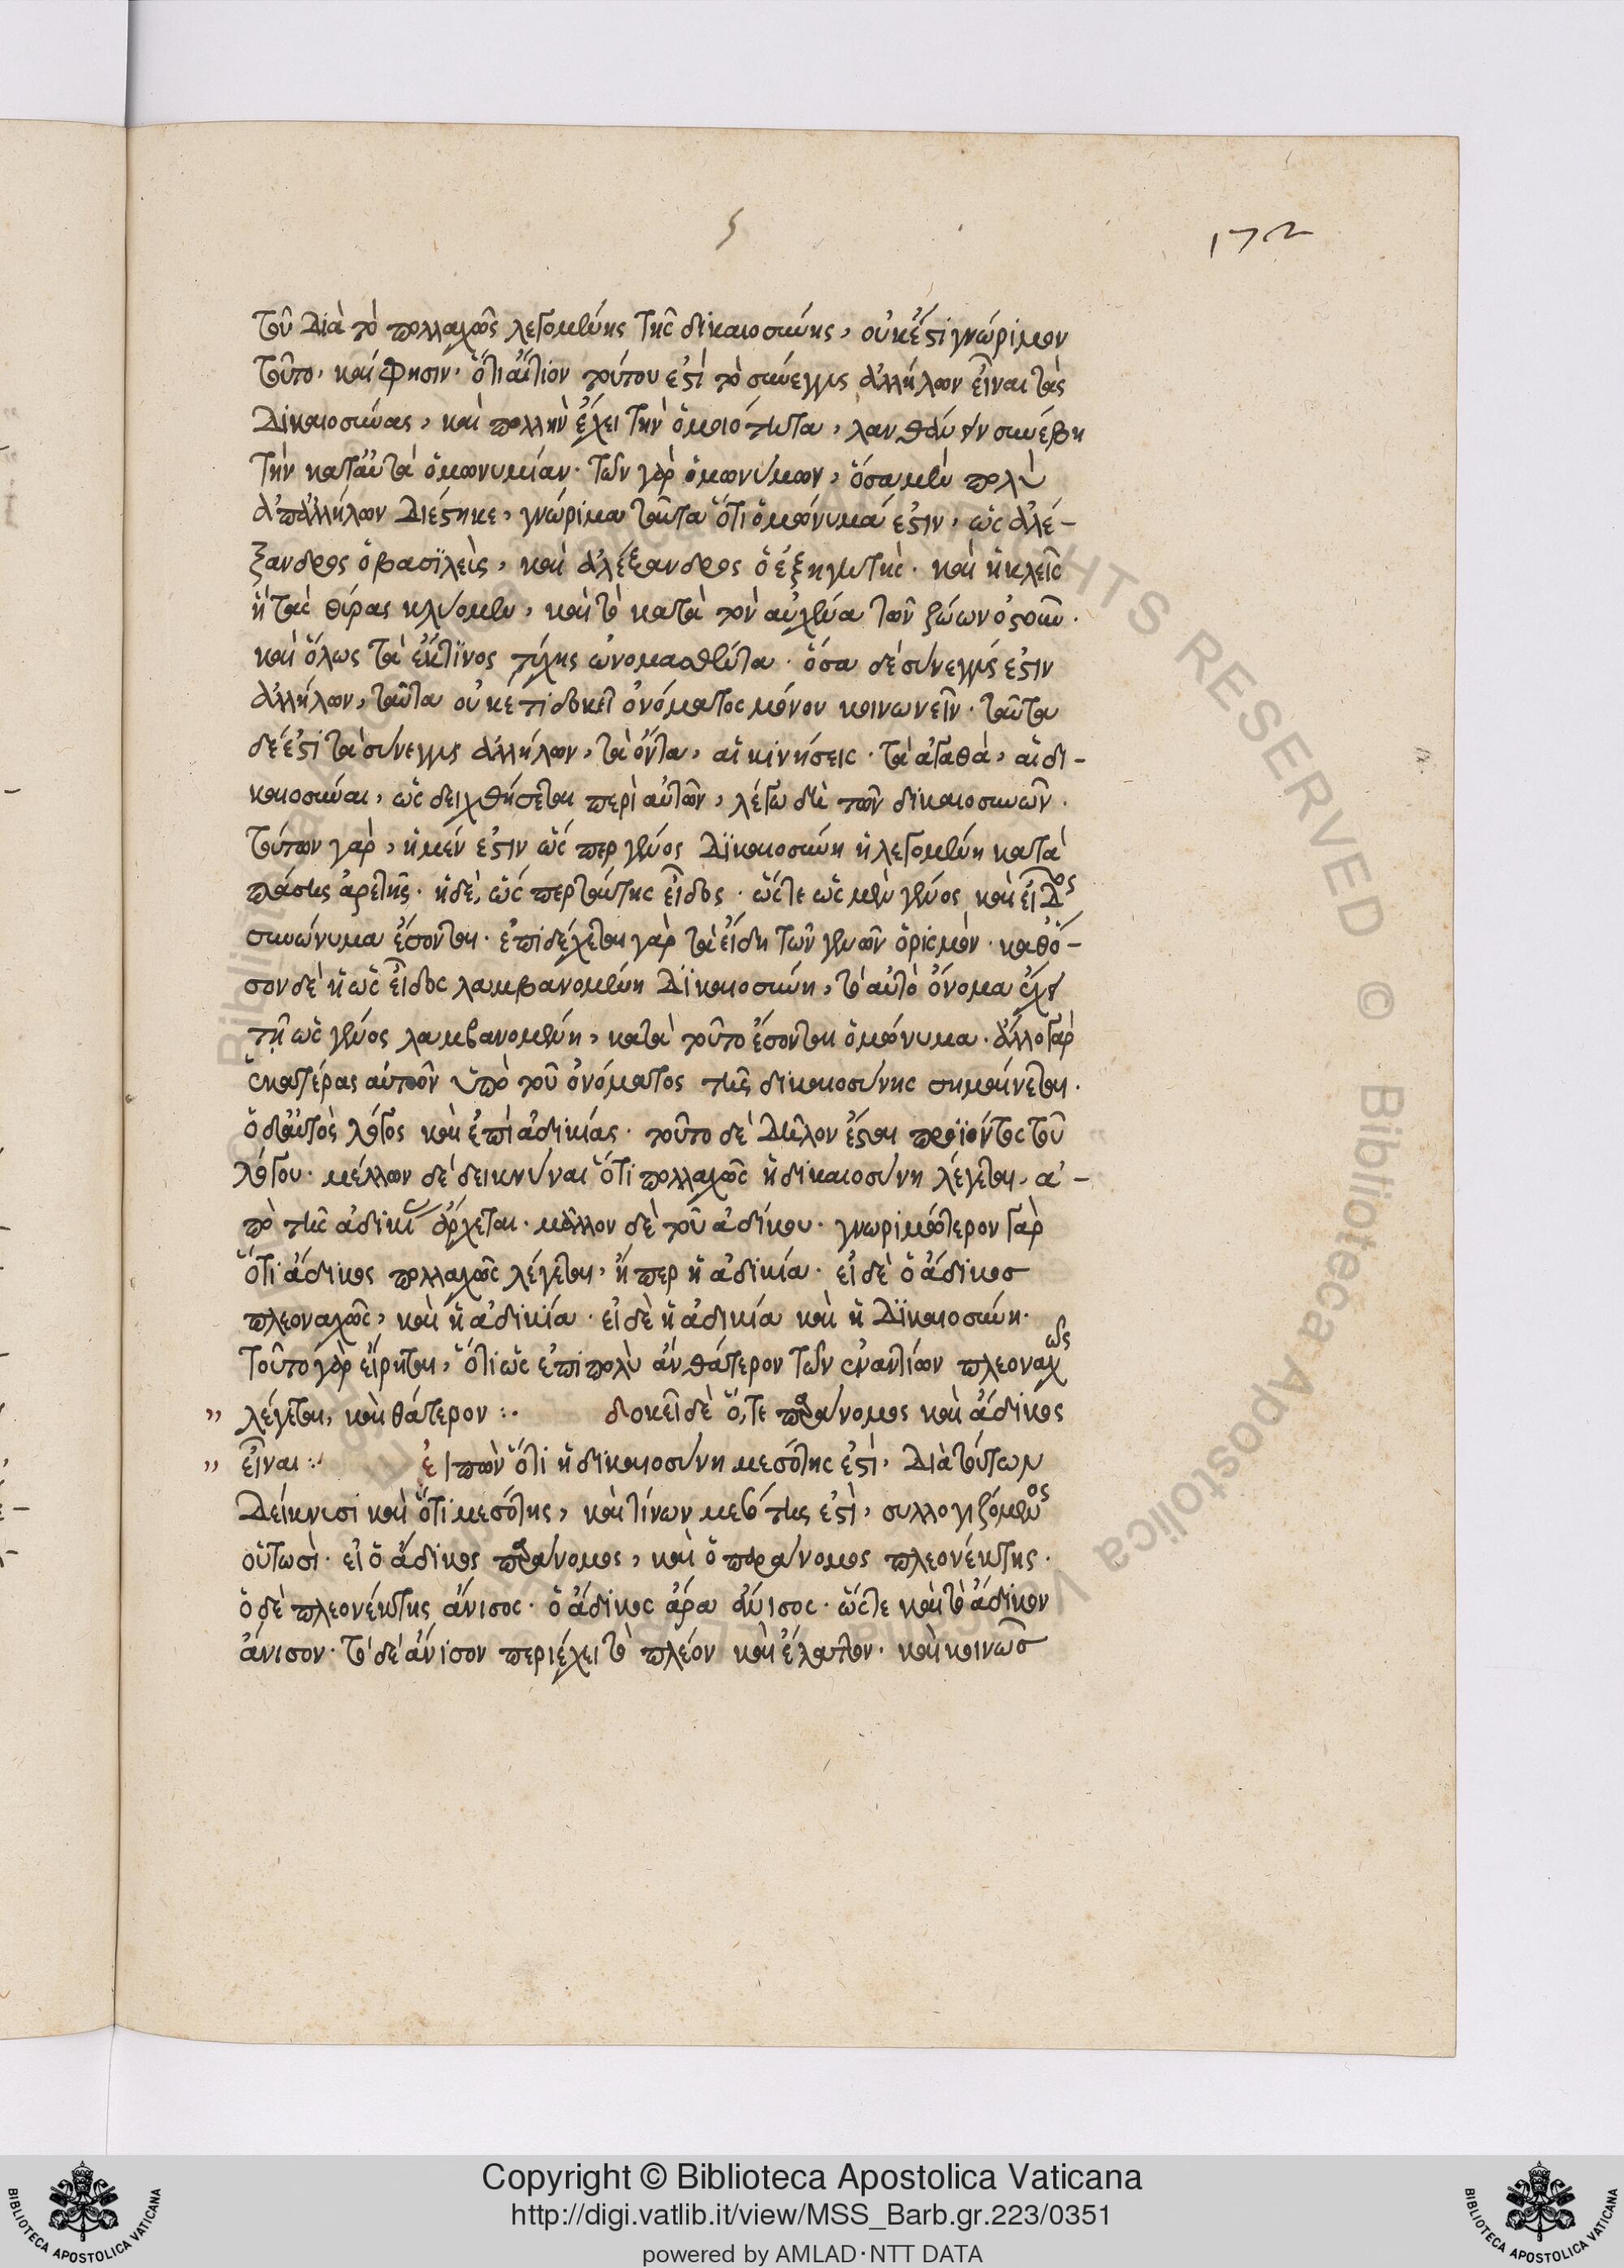 172
τοῦ διὰ τὸ πολλαχῶς λεγομένης τῆς δικαιοσύνης, οὐκέτι γνώριμον
τοῦτο. καί φησιν. ὅτι αἴτιον τούτου ἐστὶ τὸ σύνεγγυς ἀλλήλων εἶναι τὰς
δικαιοσύνας, καὶ πολλὴν ἔχει τὴν ὁμοιότητα, λανθάνειν συνέβη
τὴν κατ' αὐτὰ ὁμωνυμίαν. τῶν γὰρ ὁμωνύμων, ὅσα μὲν πολὺ
ἀπ' ἀλλήλων διέστηκε, γνώριμα ταῦτα ὅτι ὁμώνυμά ἐστιν, ὡς ἀλέ-
ξανδρος ὁ βασιλεὺς, καὶ ἀλέξανδρος ὁ ἐξηγητής. καὶ ἡ κλεῖς
ἡ τὰς θύρας κλύομεν, καὶ τὸ κατὰ τὸν αὐχένα τῶν ζώων ὀστοῦν.
καὶ ὅλως τὰ ἔκ τινος τύχης ὠνομασθέντα. ὅσα δὲ σύνεγγύς ἐστιν
ἀλλήλων, ταῦτα οὐκέτι δοκεῖ ὀνόματος μόνον κοινωνεῖν. ταῦτα
δέ ἐστι τὰ σύνεγγυς ἀλλήλων, τὰ ὄντα, αἱ κινήσεις. τὰ ἀγαθὰ, αἱ δι-
καιοσύναι, ὡς δειχθήσεται περὶ αὐτῶν, λέγω δὴ τῶν δικαιοσυνῶν.
τούτων γὰρ, ἡ μέν ἐστιν ὥσπερ γένος δικαιοσύνη ἡ λεγομένη κατὰ
πάσης ἀρετῆς. ἡ δὲ, ὥσπερ ταύτης εἶδος. ὥστε ὡς μὲν γένος καὶ εἶδος
συνώνυμα ἔσονται. ἐπιδέχεται γὰρ τὰ εἴδη τῶν γενῶν ὁρισμόν. καθό-
σον δὲ ἡ ὡς εἶδος λαμβάνομένη δικαιοσύνη, τὸ αὐτὸ ὄνομα ἔχει
τῇ ὡς γένος λαμβανομένῃ, κατὰ τοῦτο ἔσονται ὁμώνυμα. ἄλλο γὰρ
ἑκατέρας αὐτῶν ὑπὸ τοῦ ὀνόματος τῆς δικαιοσύνης σημαίνεται.
ὁ δ' αὐτὸς λόγος καὶ ἐπὶ ἀδικίας. τοῦτο δὲ δῆλον ἔσται προϊόντος τοῦ
λόγου. μέλλων δὲ δεικνύναι ὅτι πολλαχῶς ἡ δικαιοσύνη λέγεται, ἀ-
πὸ τῆς ἀδικίας ἄρχεται. μᾶλλον δὲ τοῦ ἀδίκου. γνωριμώτερον γὰρ
ὅτι ἄδικος πολλαχῶς λέγεται, ἤπερ ἡ ἀδικία. εἰ δὲ ὁ ἄδικος
πλεοναχῶς, καὶ ἡ ἀδικία. εἰ δὲ ἡ ἀδικία καὶ ἡ δικαιοσύνη.
τοῦτο γὰρ εἴρηται, ὅτι ὡς ἐπιπολὺ ἂν θάτερον τῶν ἐναντίων πλεοναχῶς
" λέγεται, καὶ θάτερον :· δοκεῖ δὲ ὅ,τε παράνομος καὶ ἄδικος
" εἶναι :· εἰπὼν ὅτι ἡ δικαιοσύνη μεσότης ἐστὶ, διὰ τούτων
δείκνυσι καὶ ὅτι μεσότης, καὶ τίνων μεσότης ἐστὶ, συλλογιζόμενος
οὕτωσὶ. εἰ ὁ ἄδικος παράνομος, καὶ ὁ παράνομος πλεονέκτης.
ὁ δὲ πλεονέκτης ἄνισος. ὁ ἄδικος ἄρα ἄνισος. ὥστε καὶ τὸ ἄδικον
ἄνισον. τὸ δὲ ἄνισον περιέχει τὸ πλέον καὶ ἔλαττον. καὶ κοινῶς
Copyright © Biblioteca Apostolica Vaticana
http://digi.vatlib.it/view/MSS_Barb.gr.223/0351
powered by AMLAD·NTT DATA